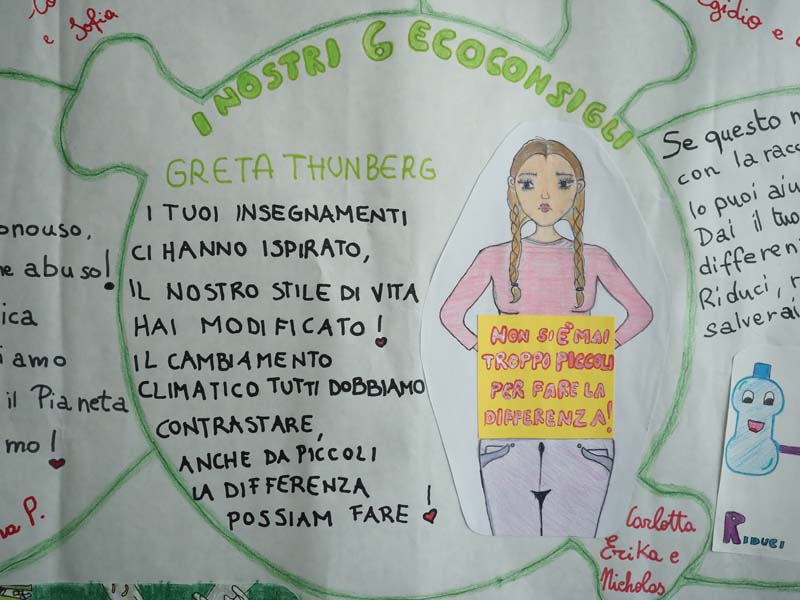 e Sofia
Egidio e
I NOSTRI 6 ECOCONSIGLI
GRETA THUNBERG
I TUOI INSEGNAMENTI
CI HANNO ISPIRATO,
IL NOSTRO STILE DI VITA
HAI MODIFICATO!
IL CAMBIAMENTO
CLIMATICO TUTTI DOBBIAMO
CONTRASTARE,
ANCHE DA PICCOLI
LA DIFFERENZA
POSSIAM FARE!
NON SI È MAI
TROPPO PICCOLI
PER FARE LA
DIFFERENZA!
Carlotta
Erika e
Nicholas
onouso,
e abuso!
ica
iamo
il Pianeta
mo!
a P.
Se questo
con la racc
lo puoi aiu
Dai il tuo
differen
Riduci, r
salverai
RIDUCI